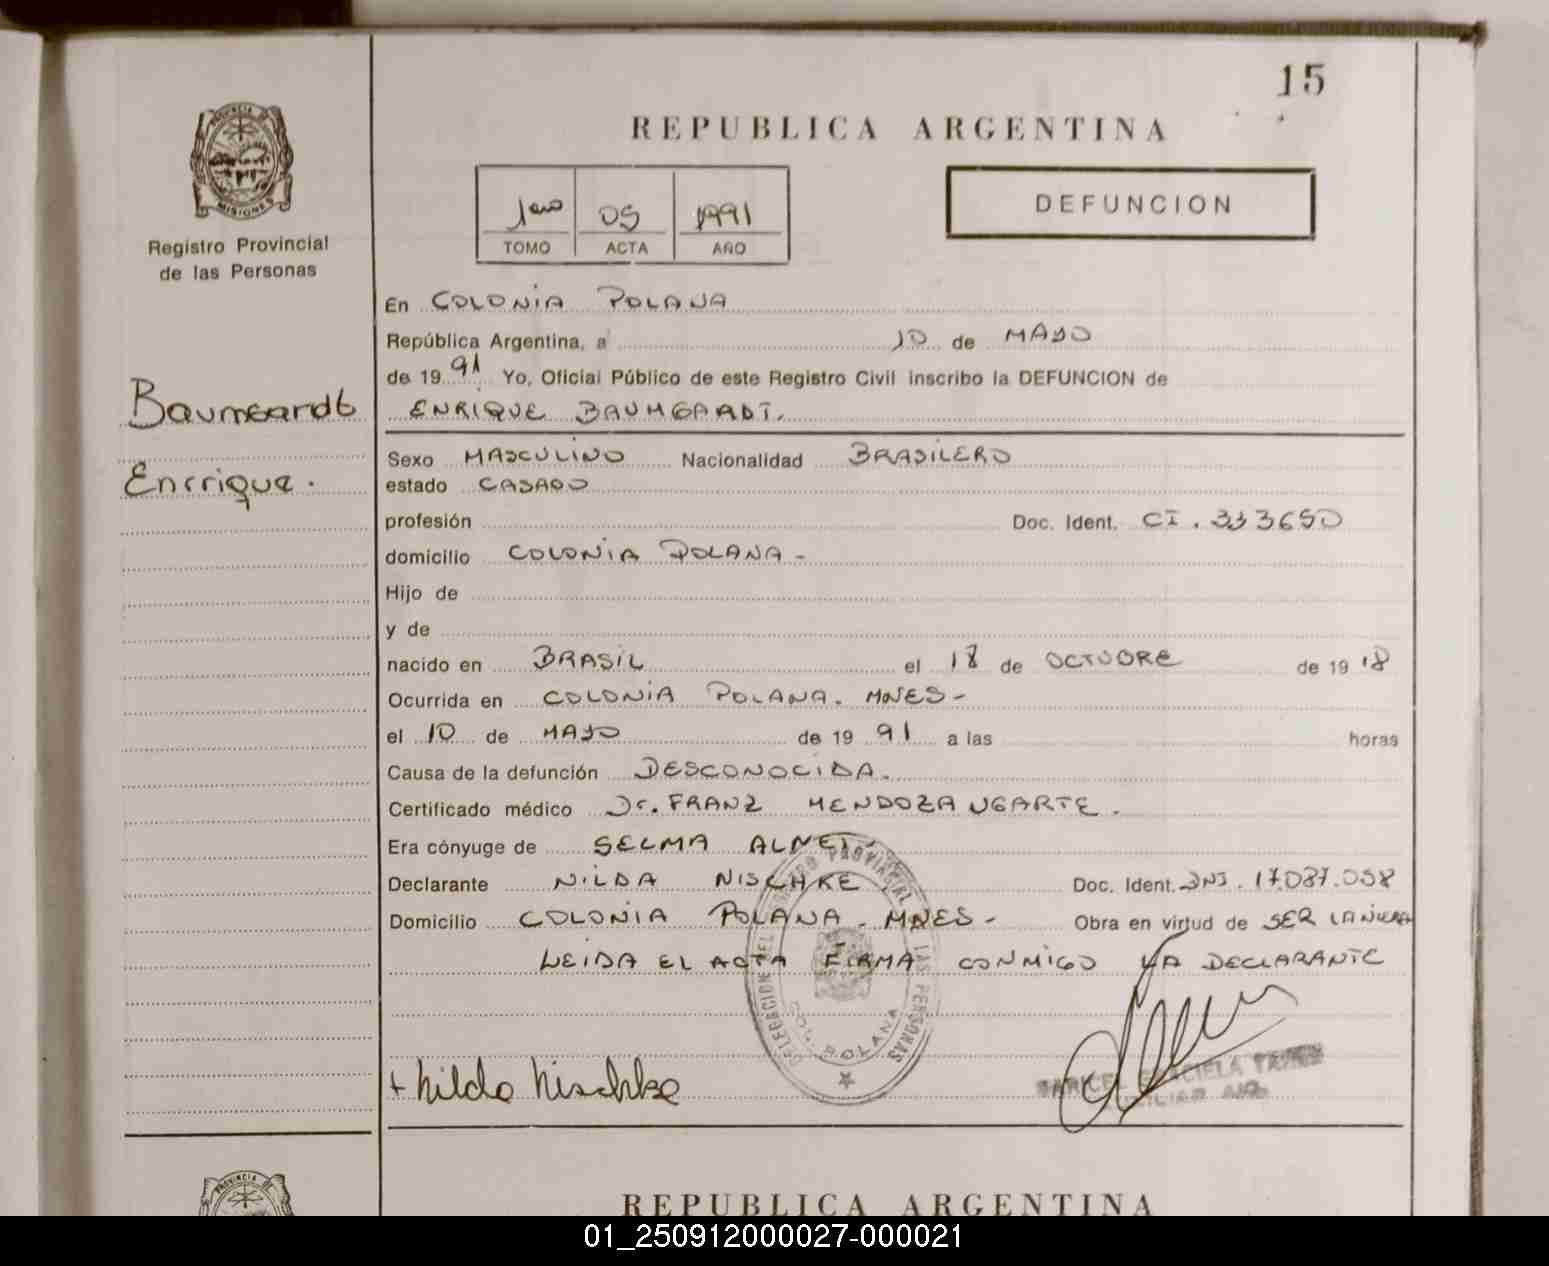 15
PROVINCIA DE
MISIONES
Registro Provincial
de las Personas
REPUBLICA ARGENTINA
1ero 05 1991
TOMO ACTA AÑO
DEFUNCION
Baumgardt
Enrrique.
En COLONIA POLANA
República Argentina, a 10 de MAYO
de 1991 Yo, Oficial Público de este Registro Civil inscribo la DEFUNCION de
ENRIQUE BAUMGARDT.
Sexo MASCULINO Nacionalidad BRASILERO
estado CASADO
profesión Doc. Ident. CI. 333650
domicilio COLONIA POLANA -
Hijo de
y de
nacido en BRASIL el 18 de OCTUBRE de 1918
Ocurrida en COLONIA POLANA. MNES -
el 10 de MAYO de 1991 a las horas
Causa de la defunción DESCONOCIDA.
Certificado médico Dr. FRANZ MENDOZA UGARTE.
Era cónyuge de SELMA
Declarante NILDA NISCHKE. Doc. Ident. DNI. 17.087.058
Domicilio COLONIA POLANA. MNES - Obra en virtud de SER
LEIDA EL ACTA FIRMA CONMIGO LA DECLARANTE
DELEGACION DEL REGISTRO PROVINCIAL LAS PERSONAS
COL. POLANA
+ Nilda Nischke
MARICEL GRACIELA
PROVINCIA DE
REPUBLICA ARGENTINA
01_250912000027-000021